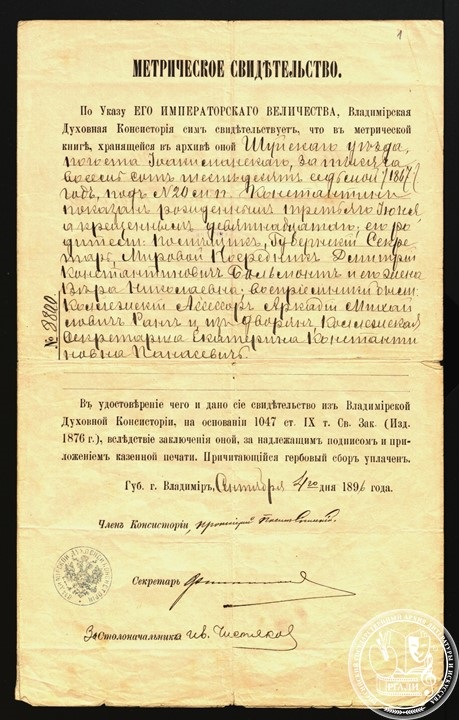 1
МЕТРИЧЕСКОЕ СВИДѢТЕЛЬСТВО.
По Указу ЕГО ИМПЕРАТОРСКАГО ВЕЛИЧЕСТВА, Владимірская
Духовная Консисторія симъ свидѣтельствуетъ, что въ метрической
книгѣ, хранящейся въ архивѣ оной Шуйскаго уѣзда,
погоста Іоакиманскаго, за тысяча
восемь сотъ шестьдесятъ седьмой /1867/
годъ, подъ № 20 м. п. Константинъ
показанъ рожденнымъ третьяго Іюня,
а крещеннымъ девятнадцатаго; его ро-
дители: Губернскій Секре-
тарь, Мировой Посредникъ Дмитрій
Константиновичъ Бальмонтъ и его жена
Вѣра Николаевна; воспріемники были:
Коллежскій Ассесоръ Аркадій Михай-
ловичъ и изъ Дворянъ, Коллежская
Секретарша Екатерина Константи-
новна
№ 2800
Въ удостовѣреніе чего и дано сіе свидѣтельство изъ Владимірской
Духовной Консисторіи, на основаніи 1047 ст. IX т. Св. Зак. (Изд.
1876 г.), вслѣдствіе заключенія оной, за надлежащимъ подписомъ и при-
ложеніемъ казенной печати. Причитающійся гербовый сборъ уплаченъ.
Губ. г. Владиміръ, Сентября 4го дня 1896 года.
Членъ Консисторіи, протоіерей
Секретарь
За Столоначальника
РГАЛИ